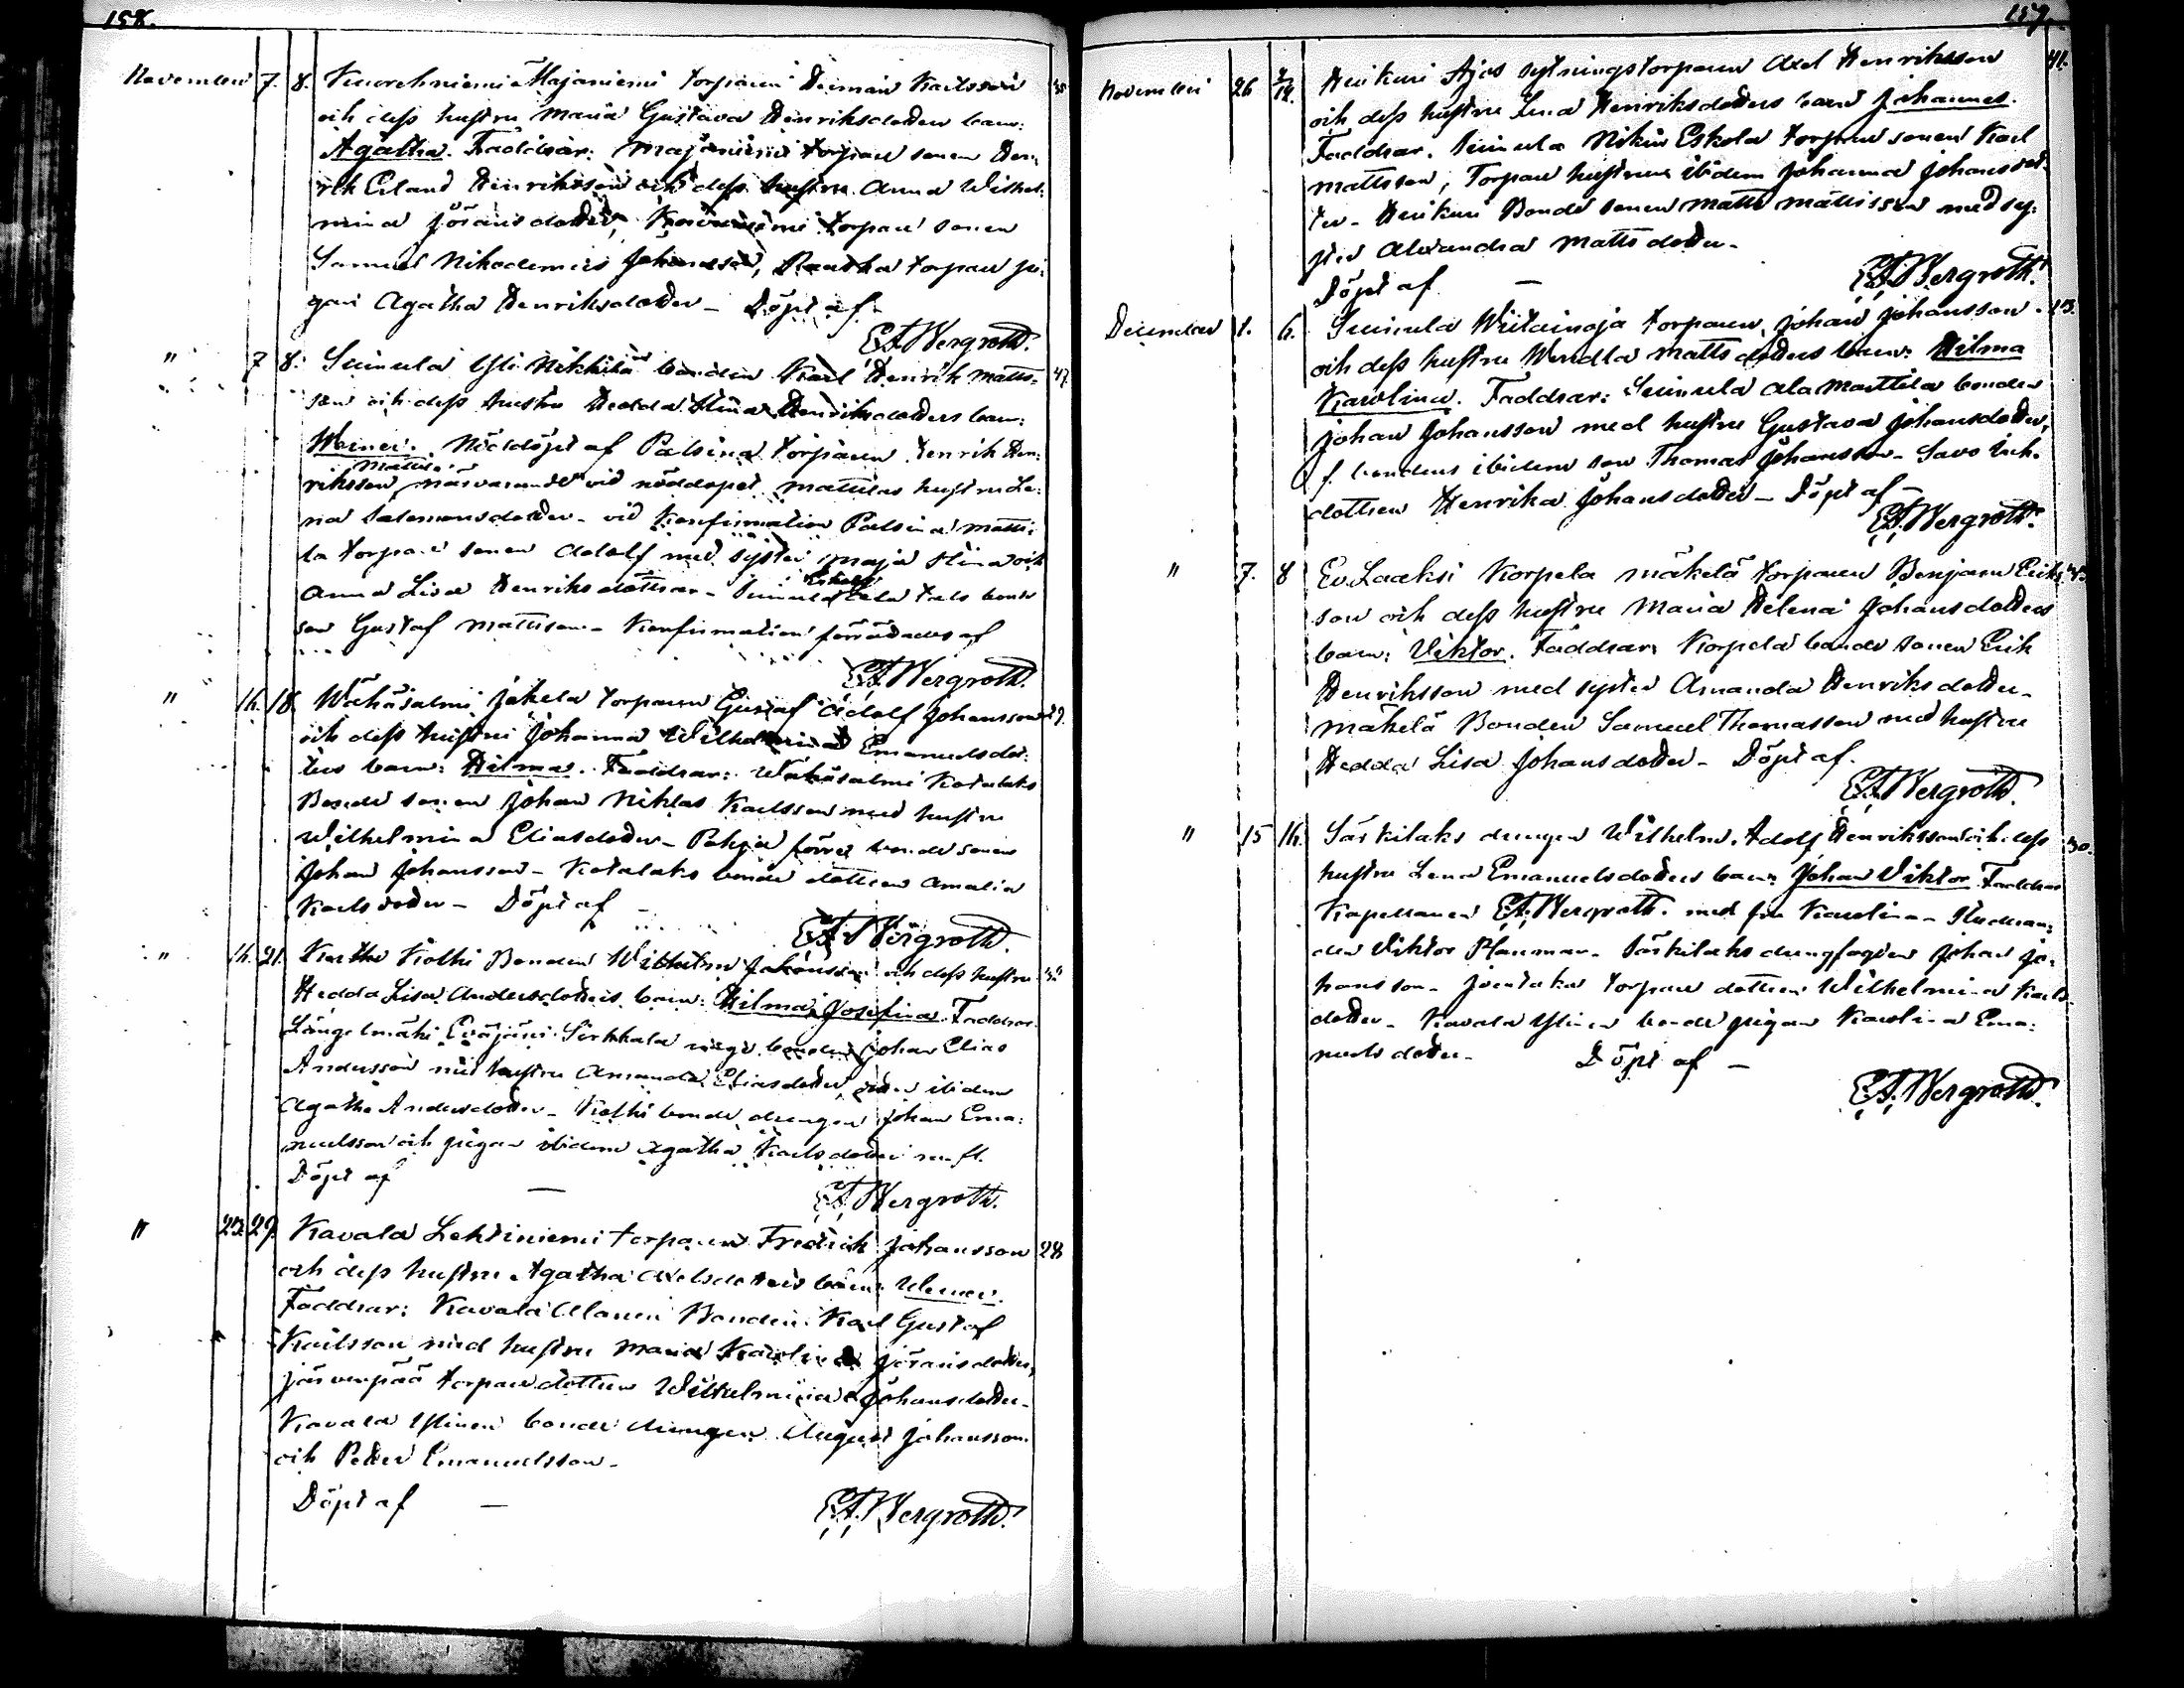 158.
November 7. 8. Kuorehniemi Majaniemi torparen Herman Karlsson 35
och dess hustru Maria Gustava Henriksdotters barn:
Agatha. Faddrar: Majaniemi torpare sonen Hen:
rik Erland Henriksson och dess hustru Anna Wilhel:
mina Jöransdotter, torpare sonen
Samuel Nikodemus Johansson, torpare pi:
gan Agatha Henriksdotter – Döpt af –
E.A. Wergroth.
" 7 8. Suinula Yli Nikkilä bonden Karl Henrik Matts: 47.
son och dess hustru Hedda Stina Henriksdotters barn:
Werner. Nöddöpt af Palsina torparen Henrik Hen:
riksson, närvarande vid nöddopet Mattilas hustru Le:
na Salomonsdotter – vid Konfirmation Palsina Matti:
la torpare sonen Adolf med syster Maja Stina och
Anna Lisa Henriksdöttrar – Suinula bonde
son Gustaf Mattsson – Konfirmation förrättades af
E.A. Wergroth.
" 16. 18. Wähäsalmi Jakela torparen Gustaf Adolf Johansson 29.
och dess hustru Johanna Wilhelmina Emanuelsdot:
ters barn: Hilma. Faddrar: Wähäsalmi Kotalaks
Bonde sonen Johan Niklas Karlsson med hustru
Wilhelmina Eliasdotter – Pohja förre bonde sonen
Johan Johansson – Kotalaks bonde dottren Amalia
Karlsdotter – Döpt af –
E.A. Wergroth.
" 16. 21. Kolhi Bonden Wilhelm Johansson och dess hustru
Hedda Lisa Andersdotters barn: Hilma Josefina. Faddrar
Längelmäki Eväjärvi Sirkkala bonden Johan Elias
Andersson med hustru Amanda Eliasdotter, ibidem
Agatha Andersdotter – Kolhi bonde drengen Johan Ema:
nuelsson och pigan ibidem Agatha Karlsdotter
Döpt af –
E.A. Wergroth.
" 23. 29. Kavala Lehtiniemi torparen Fredrik Johansson 28
och dess hustru Agatha Axelsdotters barn:
Faddrar: Kavala Alanen Bonden Karl Gustaf
Karlsson med hustru Maria Karolina Jöransdotter,
Järvenpää torpare dottren Wilhelmina Johansdotter –
Kavala Ylinen bonde drengen August Johansson
och Petter Emanuelsson –
Döpt af –
E.A. Wergroth.
157.
November 26 2/12. Heikuri Ajos sytningstorparen Axel Henriksson 41.
och dess hustru Lena Henriksdotters barn Johannes.
Faddrar. Suinula Eskola torpare sonen Karl
Mattsson, Torpare hustrun ibidem Johanna Johansdot:
ter – Heikuri Bonde sonen Matts Mattsson med sy:
ster Alexandra Mattsdotter –
Döpt af –
E.A. Wergroth.
December 1. 6. Suinula Wiitainoja torparen Johan Johansson
och dess hustru Wendla Mattsdotters barn: Hilma
Karolina. Faddrar: Suinula Ala Marttila bonden
Johan Johansson med hustru Gustava Johansdotter,
f. bondens ibidem son Thomas Johansson –
dottren Henrika Johansdotter – Döpt af –
E.A. Wergroth.
" 7. 8 Ev. Laaksi Korpela Mäkelä torparen Benjam Eriks:
son och dess hustru Maria Helena Johansdotters
barn: Viktor. Faddrar: Korpela bonde sonen Erik
Henriksson med syster Amanda Henriksdotter –
Mäkelä Bonden Samuel Thomasson med hustru
Hedda Lisa Johansdotter – Döpt af.
E.A. Wergroth.
" 15 16. Särkilaks drengen Wilhelm Adolf Henriksson och dess 30.
hustru Lena Emanuelsdotters barn: Johan Viktor. Faddrar
Kapellanen E.A. Wergroth. med fru Karolina – Studeran:
den Viktor – Särkilaks drengfogden Johan Jo:
hansson – torpare dottren Wilhelmina Karls:
dotter – Kavala Ylinen bonde pigan Karolina Ema:
nuelsdotter – Döpt af –
E.A. Wergroth.